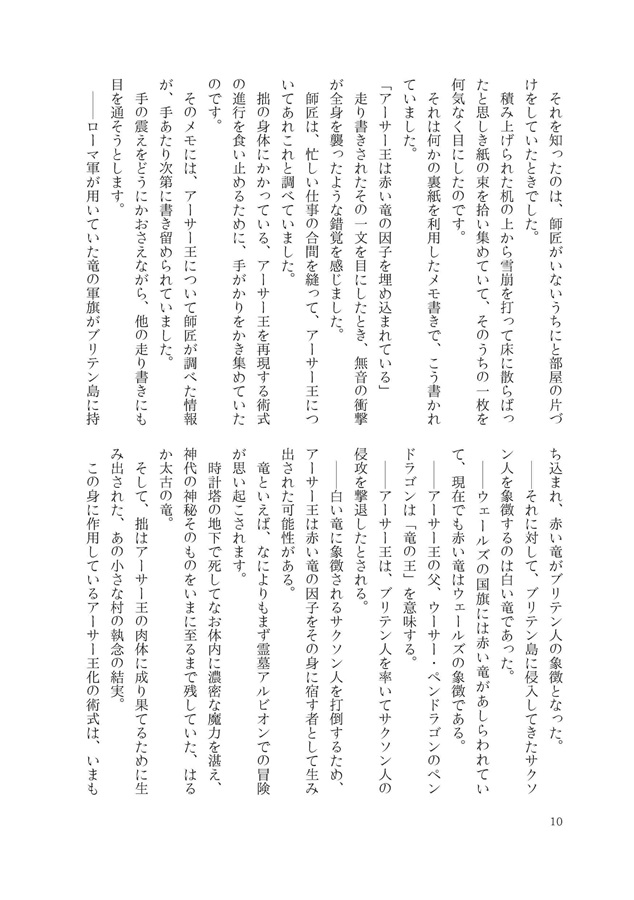 それを知ったのは、師匠がいないうちにと部屋の片づ
けをしていたときでした。
積み上げられた机の上から雪崩を打って床に散らばっ
たと思しき紙の束を拾い集めていて、そのうちの一枚を
何気なく目にしたのです。
それは何かの裏紙を利用したメモ書きで、こう書かれ
ていました。
「アーサー王は赤い竜の因子を埋め込まれている」
走り書きされたその一文を目にしたとき、無音の衝撃
が全身を襲ったような錯覚を感じました。
師匠は、忙しい仕事の合間を縫って、アーサー王につ
いてあれこれと調べていました。
拙の身体にかかっている、アーサー王を再現する術式
の進行を食い止めるために、手がかりをかき集めていた
のです。
そのメモには、アーサー王について師匠が調べた情報
が、手あたり次第に書き留められていました。
手の震えをどうにかおさえながら、他の走り書きにも
目を通そうとします。
――ローマ軍が用いていた竜の軍旗がブリテン島に持
ち込まれ、赤い竜がブリテン人の象徴となった。
――それに対して、ブリテン島に侵入してきたサクソ
ン人を象徴するのは白い竜であった。
――ウェールズの国旗には赤い竜があしらわれてい
て、現在でも赤い竜はウェールズの象徴である。
――アーサー王の父、ウーサー・ペンドラゴンのペン
ドラゴンは「竜の王」を意味する。
――アーサー王は、ブリテン人を率いてサクソン人の
侵攻を撃退したとされる。
――白い竜に象徴されるサクソン人を打倒するため、
アーサー王は赤い竜の因子をその身に宿す者として生み
出された可能性がある。
竜といえば、なによりもまず霊墓アルビオンでの冒険
が思い起こされます。
時計塔の地下で死してなお体内に濃密な魔力を湛え、
神代の神秘そのものをいまに至るまで残していた、はる
か太古の竜。
そして、拙はアーサー王の肉体に成り果てるために生
み出された、あの小さな村の執念の結実。
この身に作用しているアーサー王化の術式は、いまも
10